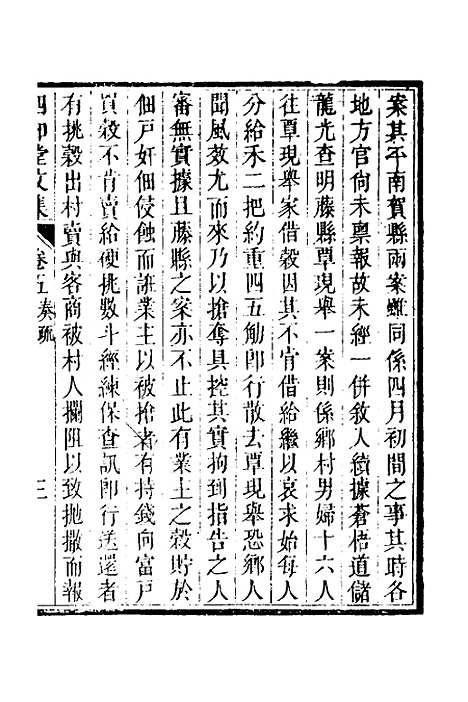 案其平南賀縣兩案雖同係四月初間之事其時各
地方官尙未稟報故未經一併敘入續據蒼梧道儲
龍光查明藤縣覃現舉一案則係鄉村男婦十六人
往覃現舉家借穀因其不肯借給繼以哀求始每人
分給禾二把約重四五觔卽行散去覃現舉恐鄉人
聞風效尤而來乃以搶奪具控其實拘到指告之人
審無實據且藤縣之案亦不止此有業主之穀貯於
佃戶奸佃侵蝕而誑業主以被搶者有持錢向富戶
買穀不肯賣給便挑數斗經練保查訊卽行送還者
有挑穀出村賣與客商被村人攔阻以致拋撒而報
四知堂文集
卷五奏疏
三